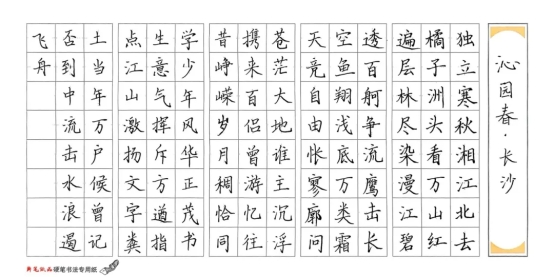 沁园春·长沙
独立寒秋湘江北去
橘子洲头看万山红
遍层林尽染漫江碧
透百舸争流鹰击长
空鱼翔浅底万类霜
天竞自由怅寥廓问
苍茫大地谁主沉浮
携来百侣曾游忆往
昔峥嵘岁月稠恰同
学少年风华正茂书
生意气挥斥方遒指
点江山激扬文字粪
土当年万户候曾记
否到中流击水浪遏
飞舟
硬笔书法专用纸